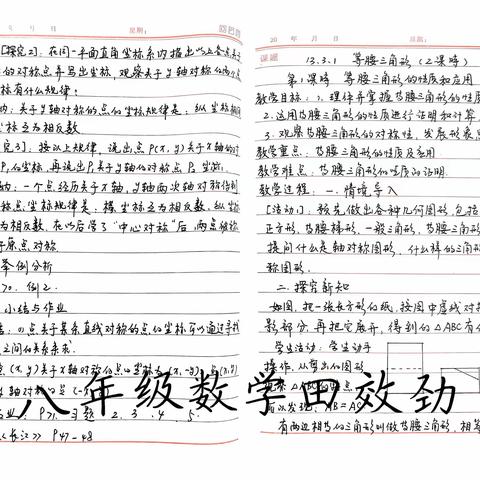 年 月 日 星期:
[探究2]: 在同一平面直角坐标系内描出以上各点关于
的对称点并写出坐标, 观察关于y轴对称的两个点
标有什么规律?
纳: 关于y轴对称的点的坐标规律是: 纵坐标相同
坐标互为相反数
究3]: 按以上规律, 说出点P(x, y)关于x轴的对
P1的坐标, 再说出P1关于y轴的对称点P2坐标
纳: 一个点经历关于x轴, y轴两次轴对称得到
称点坐标规律是: 横坐标互为相反数, 纵坐标
为相反数, 在以后学了"中心对称"后, 两点被称
于原点对称
举例分析
70. 例2.
小结与作业
结: (1)点关于某条直线对称的点的坐标可以通过寻找
之间的关系来求.
点(x, y)关于x轴对称的点的坐标为(x, -y)
y轴对称的是(-x, y)
业: P71 习题 2. 3. 4. 5.
《长江》 P47-48
20 年 月 日 星期:
课题 13.3.1 等腰三角形 (2课时)
第1课时 等腰三角形的性质和应用
教学目标: 1. 理解并掌握等腰三角形的性质
2. 运用等腰三角形的性质进行证明和计算
3. 观察等腰三角形的对称性, 发展形象思
教学重点: 等腰三角形的性质及应用
教学难点: 等腰三角形的性质的证明.
教学过程: 一. 情境导入
[活动1]: 预先做出各种几何图形, 包括
正方形, 等腰梯形, 一般三角形, 等腰三角形
提问什么是轴对称图形, 什么样的三角形
称图形.
二. 探究新知
如图, 把一张长方形的纸, 按图中虚线对折
影部分, 再把它展开, 得到的△ABC有什
学生活动: 学生动手
操作, 从剪出的图形
观察△ABC的特点
可以发现: AB=AC
有两边相等的三角形叫做等腰三角形, 相等
八年级数学田效劲